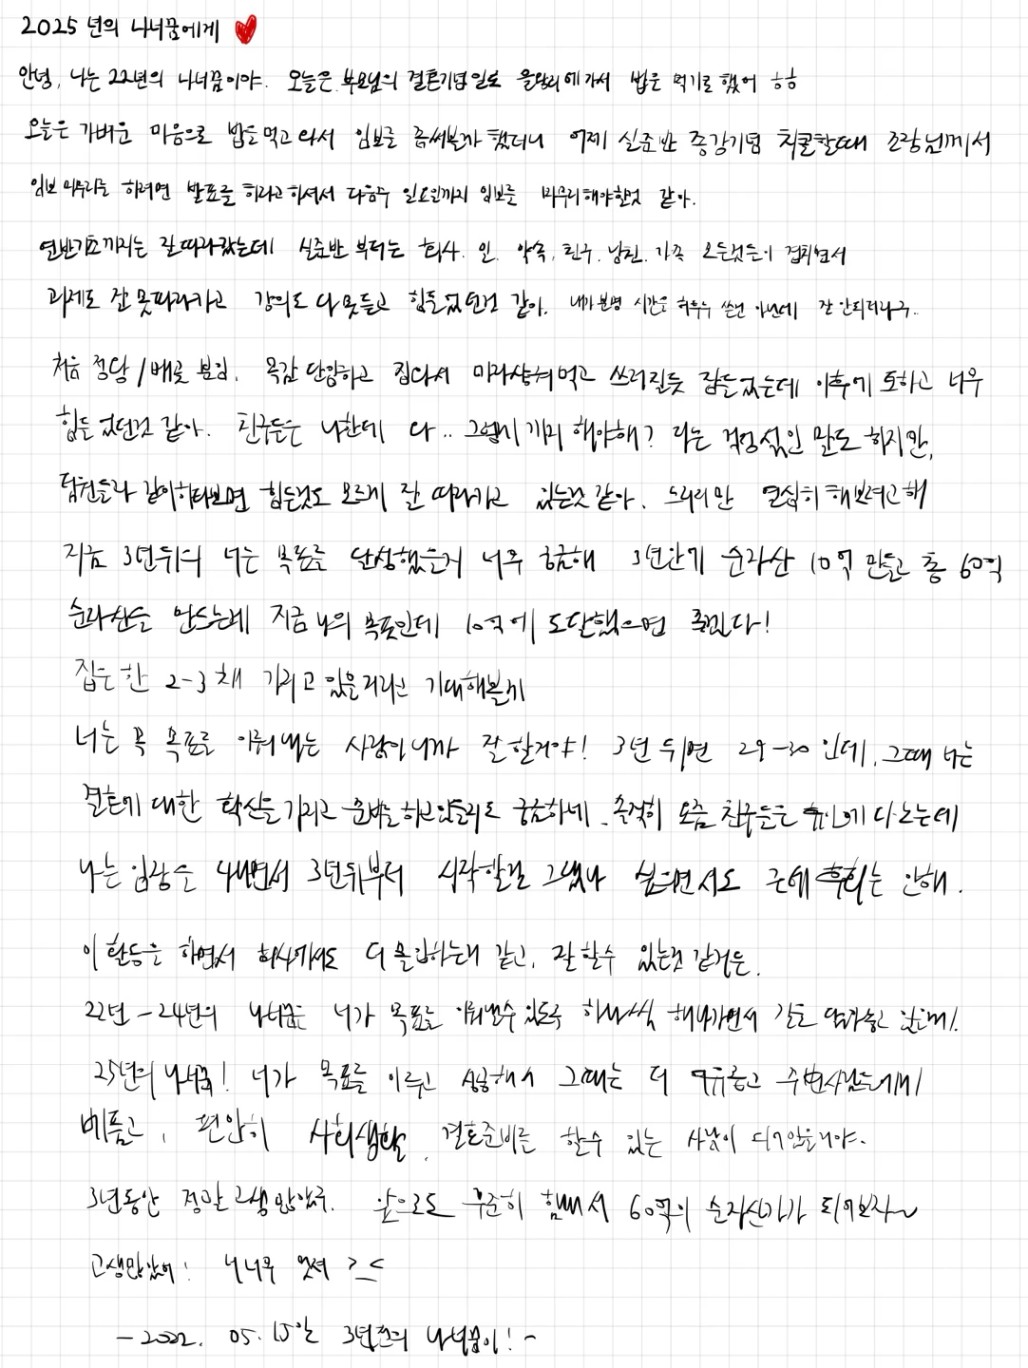 2025년의 나너꿈에게
안녕, 나는 22년의 나너꿈이야. 오늘은 부모님의 결혼기념일로 을왕리에 가서 밥을 먹기로 했어 ㅎㅎ
오늘은 가벼운 마음으로 밥을 먹고 와서 임보를 좀 써볼까 했더니 어제 실준반 종강기념 최콜할때 조장님께서
임보 마무리를 하려면 발표를 하라고 하셔서 다음주 일요일까지 임보를 마무리해야할것 같아.
열반기초까지는 잘따라왔는데 실준반 부터는 회사. 인. 약속, 친구. 남친. 가족 모든것들이 겹치면서
과제도 잘 못따라가고 강의도 다 못듣고 힘들었던것 같아. 내가 분명 시간을 허투루 쓴건 아닌데 잘 안되더라구..
처음 정당/배곧 분임. 목감 단임하고 집다서 마라샹궈먹고 쓰러질듯 잠들었는데 이후에 토하고 너무
힘들었던것 같아. 친구들은 나한테 다.. 그렇게까지 해야해? 라는 걱정섞인 말도 하지만,
팀원들과 같이하다보면 힘든것도 모르게 잘 따라가고 있는것 같아. 느리지만 열심히 해보려고해
지금 3년뒤의 너는 목표를 달성했을지 너무 궁금해 3년안에 순자산 10억 만들고 총 60억
순자산을 만드는게 지금 나의 목표인데 10억에 도달했으면 좋겠다!
집은 한 2-3채 가지고 있을거라고 기대해볼게
너는 꼭 목표를 이뤄내는 사람이니까 잘 할거야! 3년 뒤면 29-30인데, 그때 너는
결혼에 대한 확신을 가지고 준비를 하고있을지도 궁금하네. 솔직히 요즘 친구들은 휴일에 다 노는데
나는 임장을 다니면서 3년뒤부터 시작할걸 그랬나 싶으면서도 근데 후회는 안해.
이 활동을 하면서 회사에서도 더 몰입하는것 같고, 잘 할수 있는것 같거든.
22년-24년의 나너꿈은 너가 목표를 이뤄낼수 있도록 하나씩 해나가면서 길을 닦아놓고 있을게!
25년의 나너꿈! 너가 목표를 이루고 성공해서 그때는 더 여유롭고 주변사람들에게
베풀고, 편안히 사회생활, 결혼준비를 할수 있는 사람이 되어있을거야.
3년동안 정말 고생 많았구. 앞으로도 꾸준히 힘내서 60억의 순자산가가 되어보자~
고생많았어! 너 너무 멋져 >_<
- 2022. 05. 15일 3년전의 나너꿈이! -